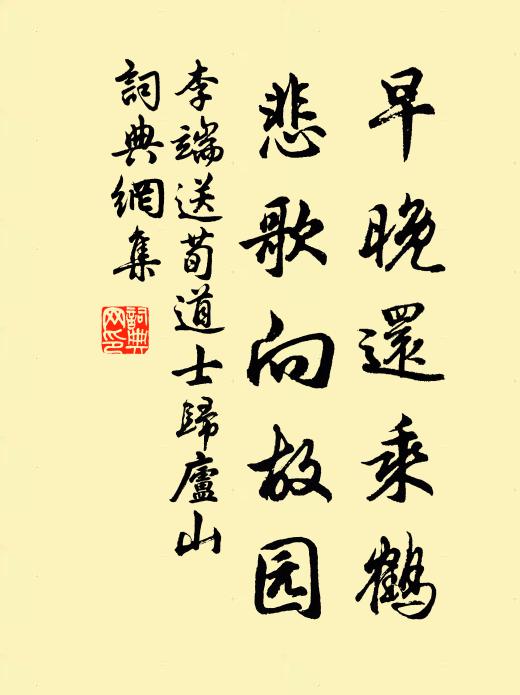 早晚還乘鶴
悲歌向故园
李端送荀道士歸廬山
詞典網集
詞典网印